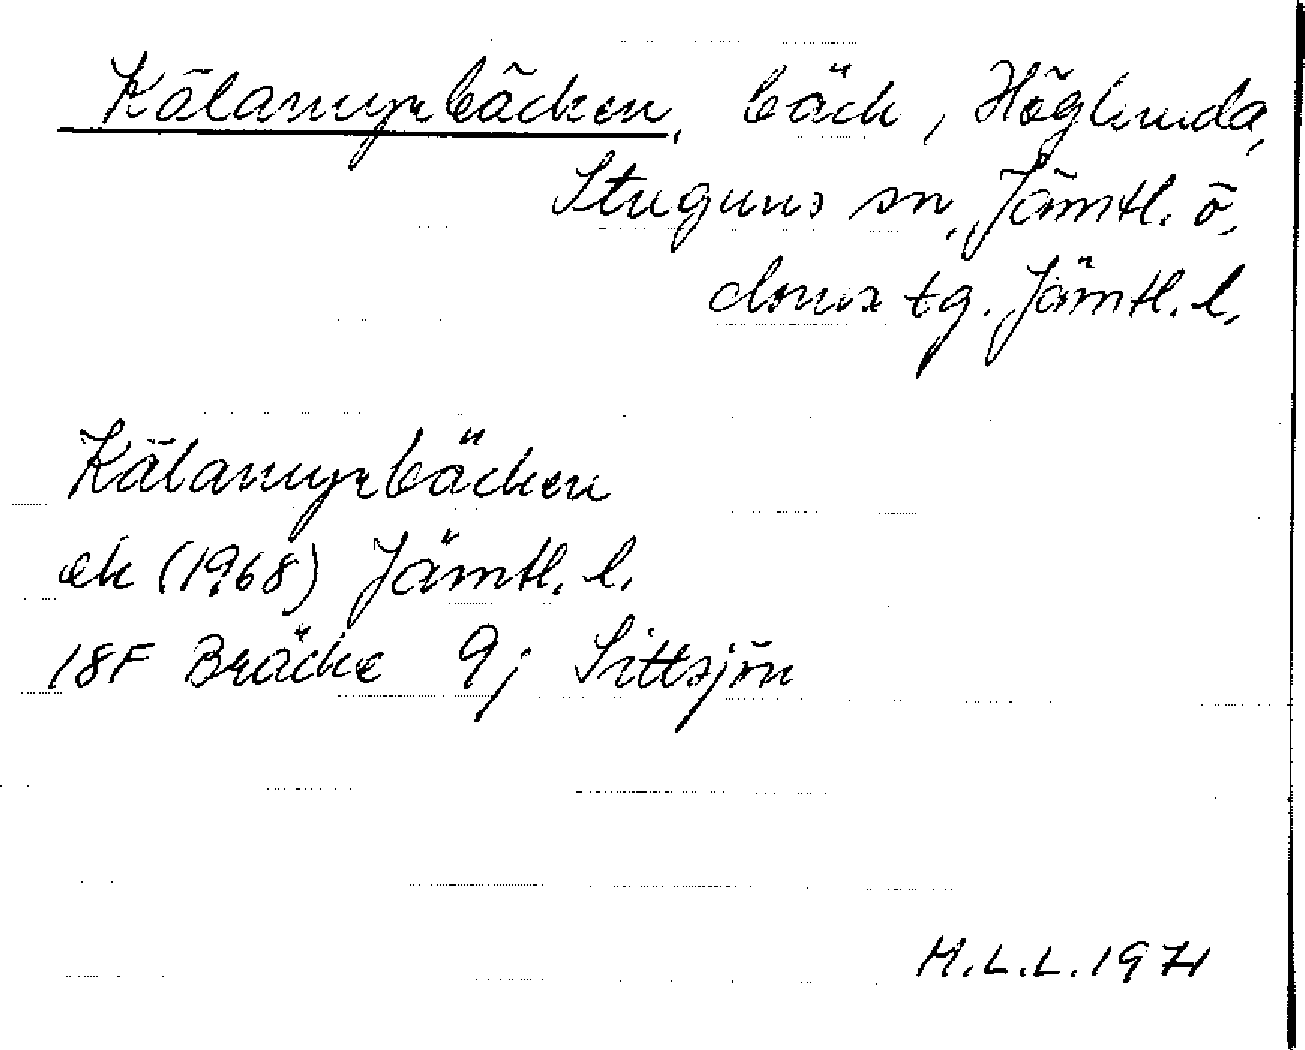 Kälamyrbäcken, bäck, Höglunda,
Stuguns sn, Jämtl. ö.
domsa tg. Jämtl. l.
Kälamyrbäcken
ek (1968) Jämtl. l.
18F Bräcke 9j Sittsjön
M.L.L. 1971